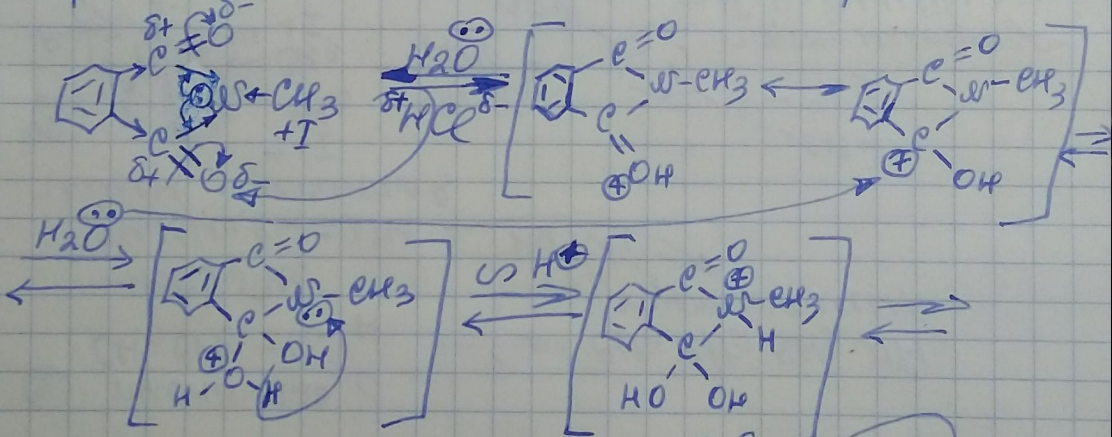 δ-
δ+ C O
N CH3
+I
C
δ+ O δ-
H2O
δ+ HCl δ-
C=O
N-CH3
C
+ OH
C=O
N-CH3
C
+ OH
H2O
C=O
N-CH3
C
+ OH
H-O-H
S H+
C=O
+
N-CH3
H
C
HO OH